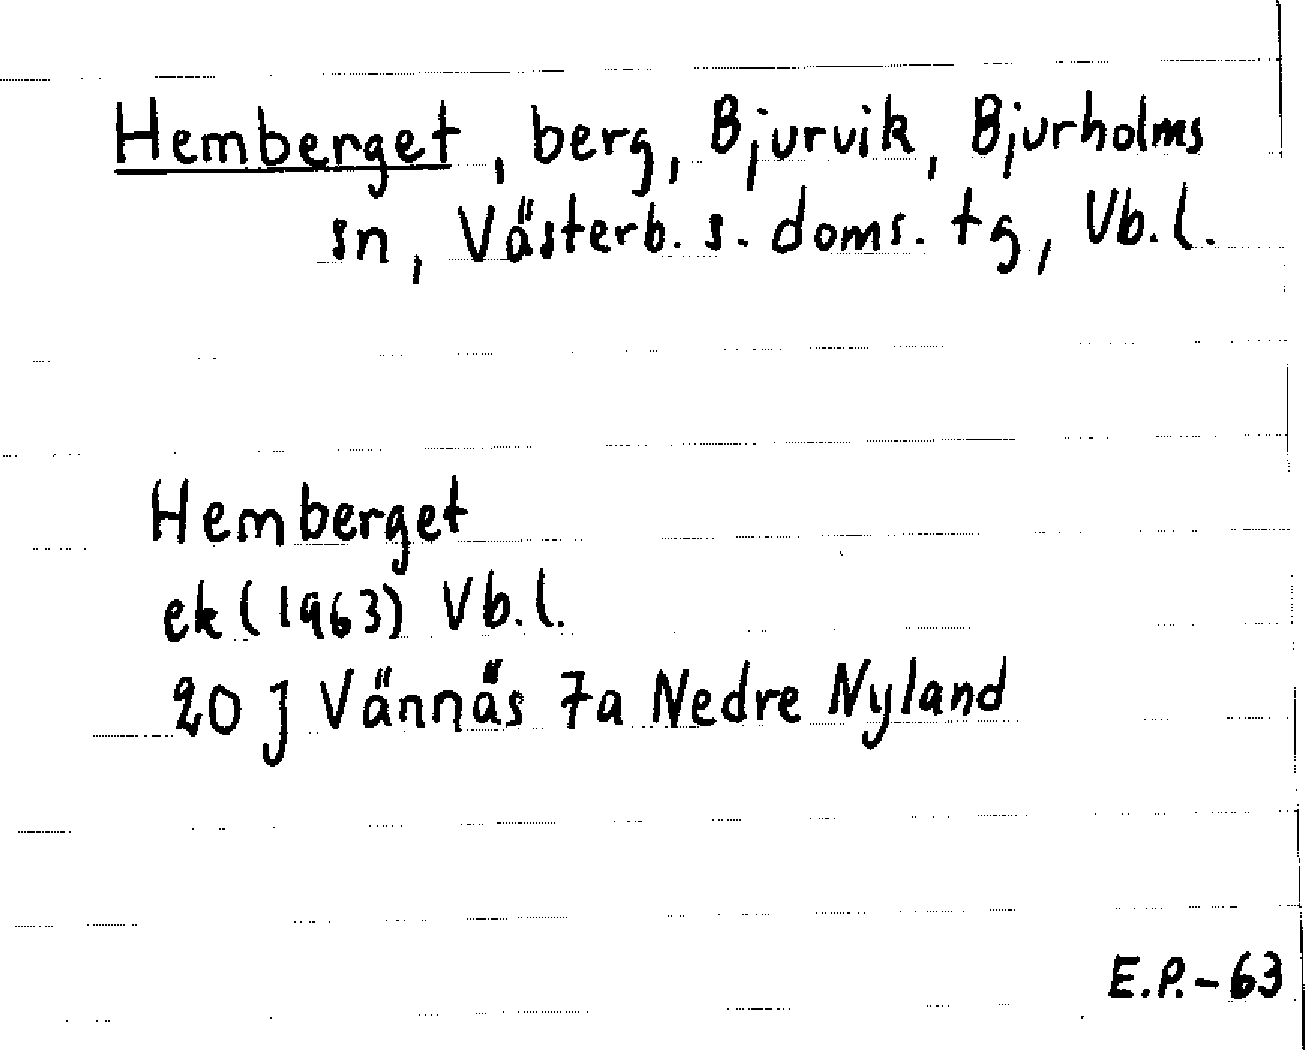 Hemberget, berg, Bjurvik, Bjurholms
sn, Västerb. s. doms. tg, Vb. l.
Hemberget
ek (1963) Vb. l.
20 J Vännäs 7a Nedre Nyland
E.P.-63